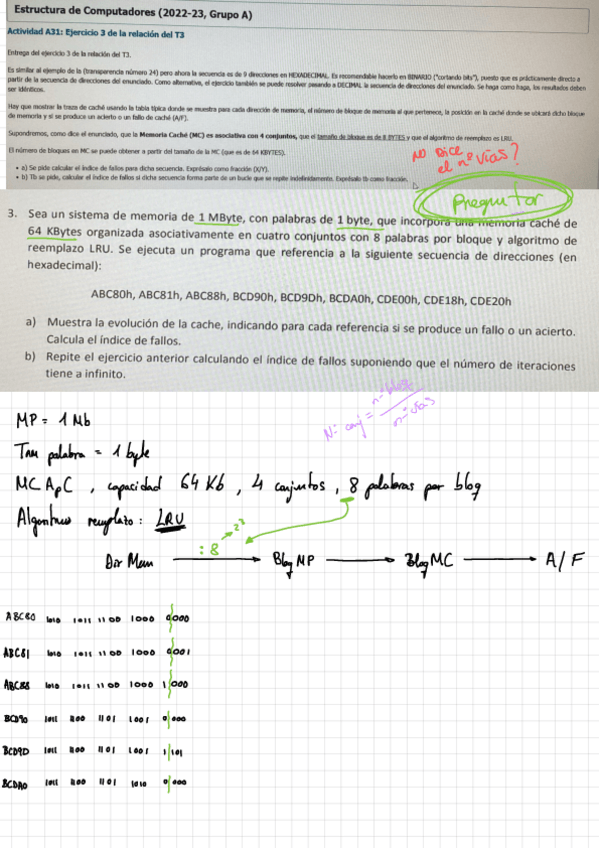 Estructura de Computadores (2022-23, Grupo A)
Actividad A31: Ejercicio 3 de la relación del T3
Entrega del ejercicio 3 de la relación del T3.
Es similar al ejemplo de la (transparencia número 24) pero ahora la secuencia es de 9 direcciones en HEXADECIMAL. Es recomendable hacerlo en BINARIO ("cortando bits"), puesto que es prácticamente directo a
partir de la secuencia de direcciones del enunciado. Como alternativa, el ejercicio también se puede resolver pasando a DECIMAL la secuencia de direcciones del enunciado. Se haga como haga, los resultados deben
ser idénticos.
Hay que mostrar la traza de caché usando la tabla típica donde se muestra para cada dirección de memoria, el número de bloque de memoria al que pertenece, la posición en la caché donde se ubicará dicho bloque
de memoria y si se produce un acierto o un fallo de caché (A/F).
Supondremos, como dice el enunciado, que la Memoria Caché (MC) es asociativa con 4 conjuntos, que el tamaño de bloque es de 8 BYTES y que el algoritmo de reemplazo es LRU.
El número de bloques en MC se puede obtener a partir del tamaño de la MC (que es de 64 KBYTES).
• a) Se pide calcular el índice de fallos para dicha secuencia. Exprésalo como fracción (X/Y).
• b) Tb se pide, calcular el índice de fallos si dicha secuencia forma parte de un bucle que se repite indefinidamente. Exprésalo tb como fracción.
NO DICE
el nº vías?
Preguntar
3. Sea un sistema de memoria de 1 MByte, con palabras de 1 byte, que incorpora una memoria caché de
64 KBytes organizada asociativamente en cuatro conjuntos con 8 palabras por bloque y algoritmo de
reemplazo LRU. Se ejecuta un programa que referencia a la siguiente secuencia de direcciones (en
hexadecimal):
ABC80h, ABC81h, ABC88h, BCD90h, BCD9Dh, BCDA0h, CDE00h, CDE18h, CDE20h
a) Muestra la evolución de la cache, indicando para cada referencia si se produce un fallo o un acierto.
Calcula el índice de fallos.
b) Repite el ejercicio anterior calculando el índice de fallos suponiendo que el número de iteraciones
tiene a infinito.
Nº conj = nº bloq / nº vías
MP = 1 Mb
Tam palabra = 1 byte
MC ApC, capacidad 64 Kb, 4 conjuntos, 8 palabras por bloq
Algoritmo remplazo: LRU
: 8 → 2³
Dir Mem → Bloq MP → Bloq MC → A/F
ABC80 1010 1011 1100 1000 0000
ABC81 1010 1011 1100 1000 0001
ABC88 1010 1011 1100 1000 1000
BCD90 1011 1100 1101 1001 0000
BCD9D 1011 1100 1101 1001 1101
BCDA0 1011 1100 1101 1010 0000